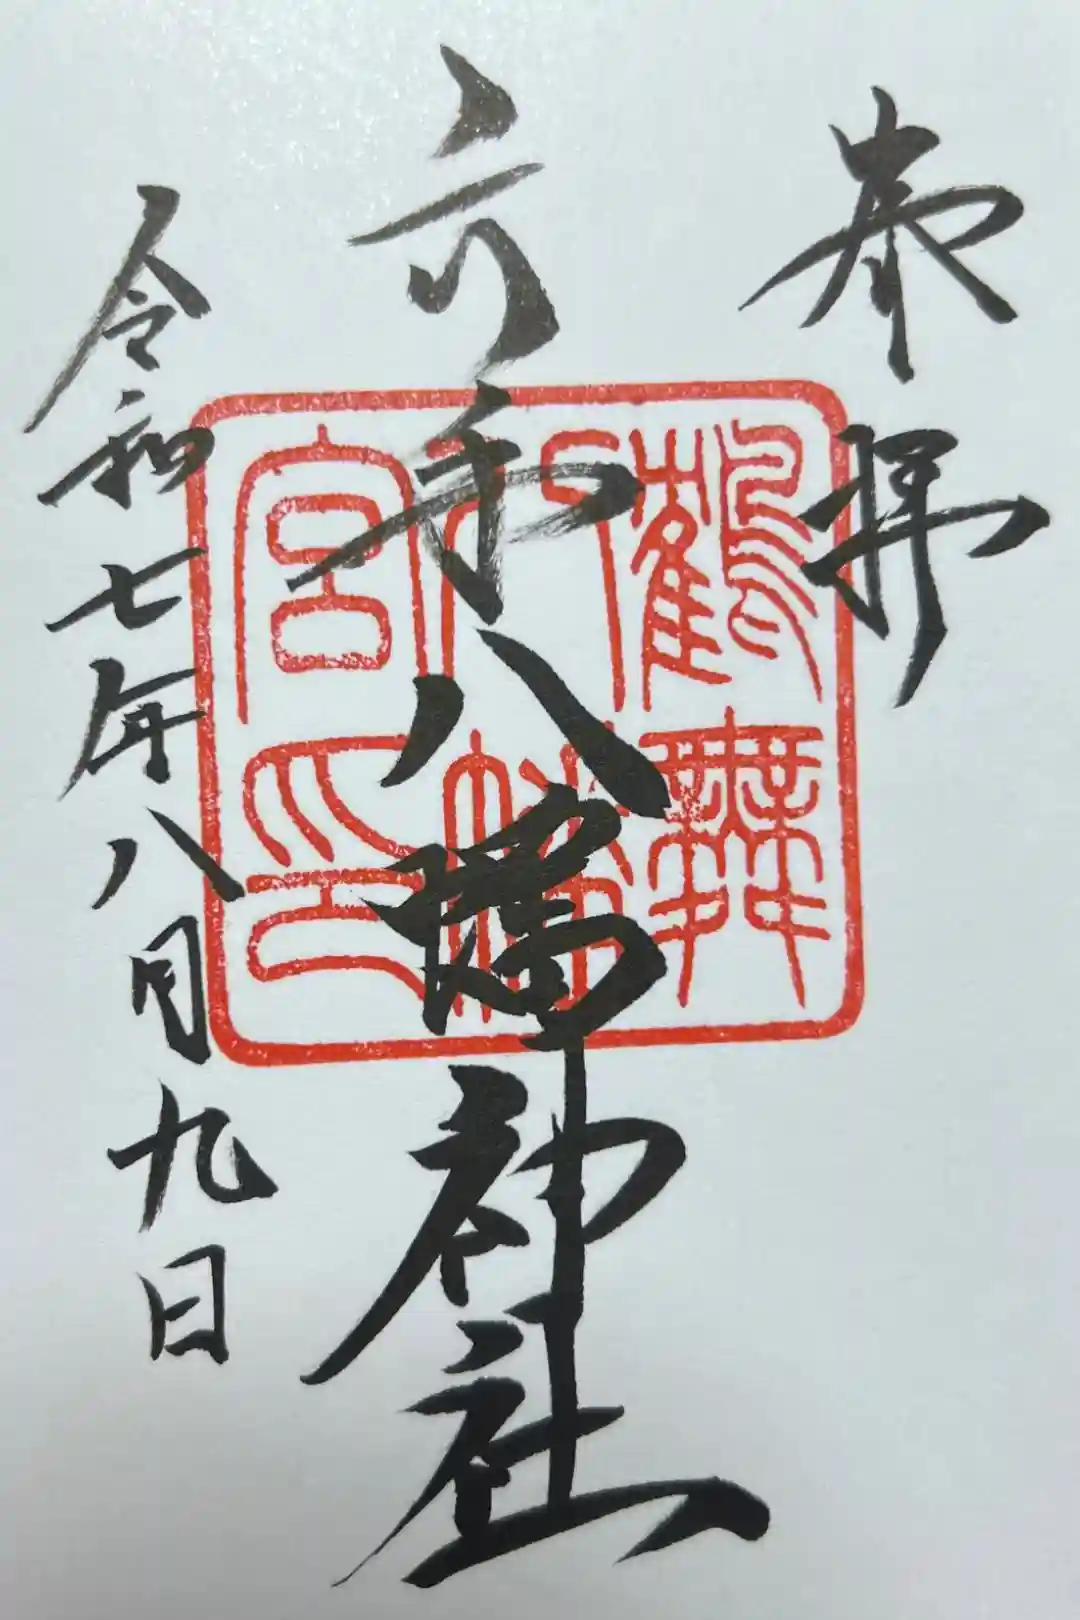 奉拝
六手八幡神社
令和七年八月九日
鶴舞
八幡
宮印